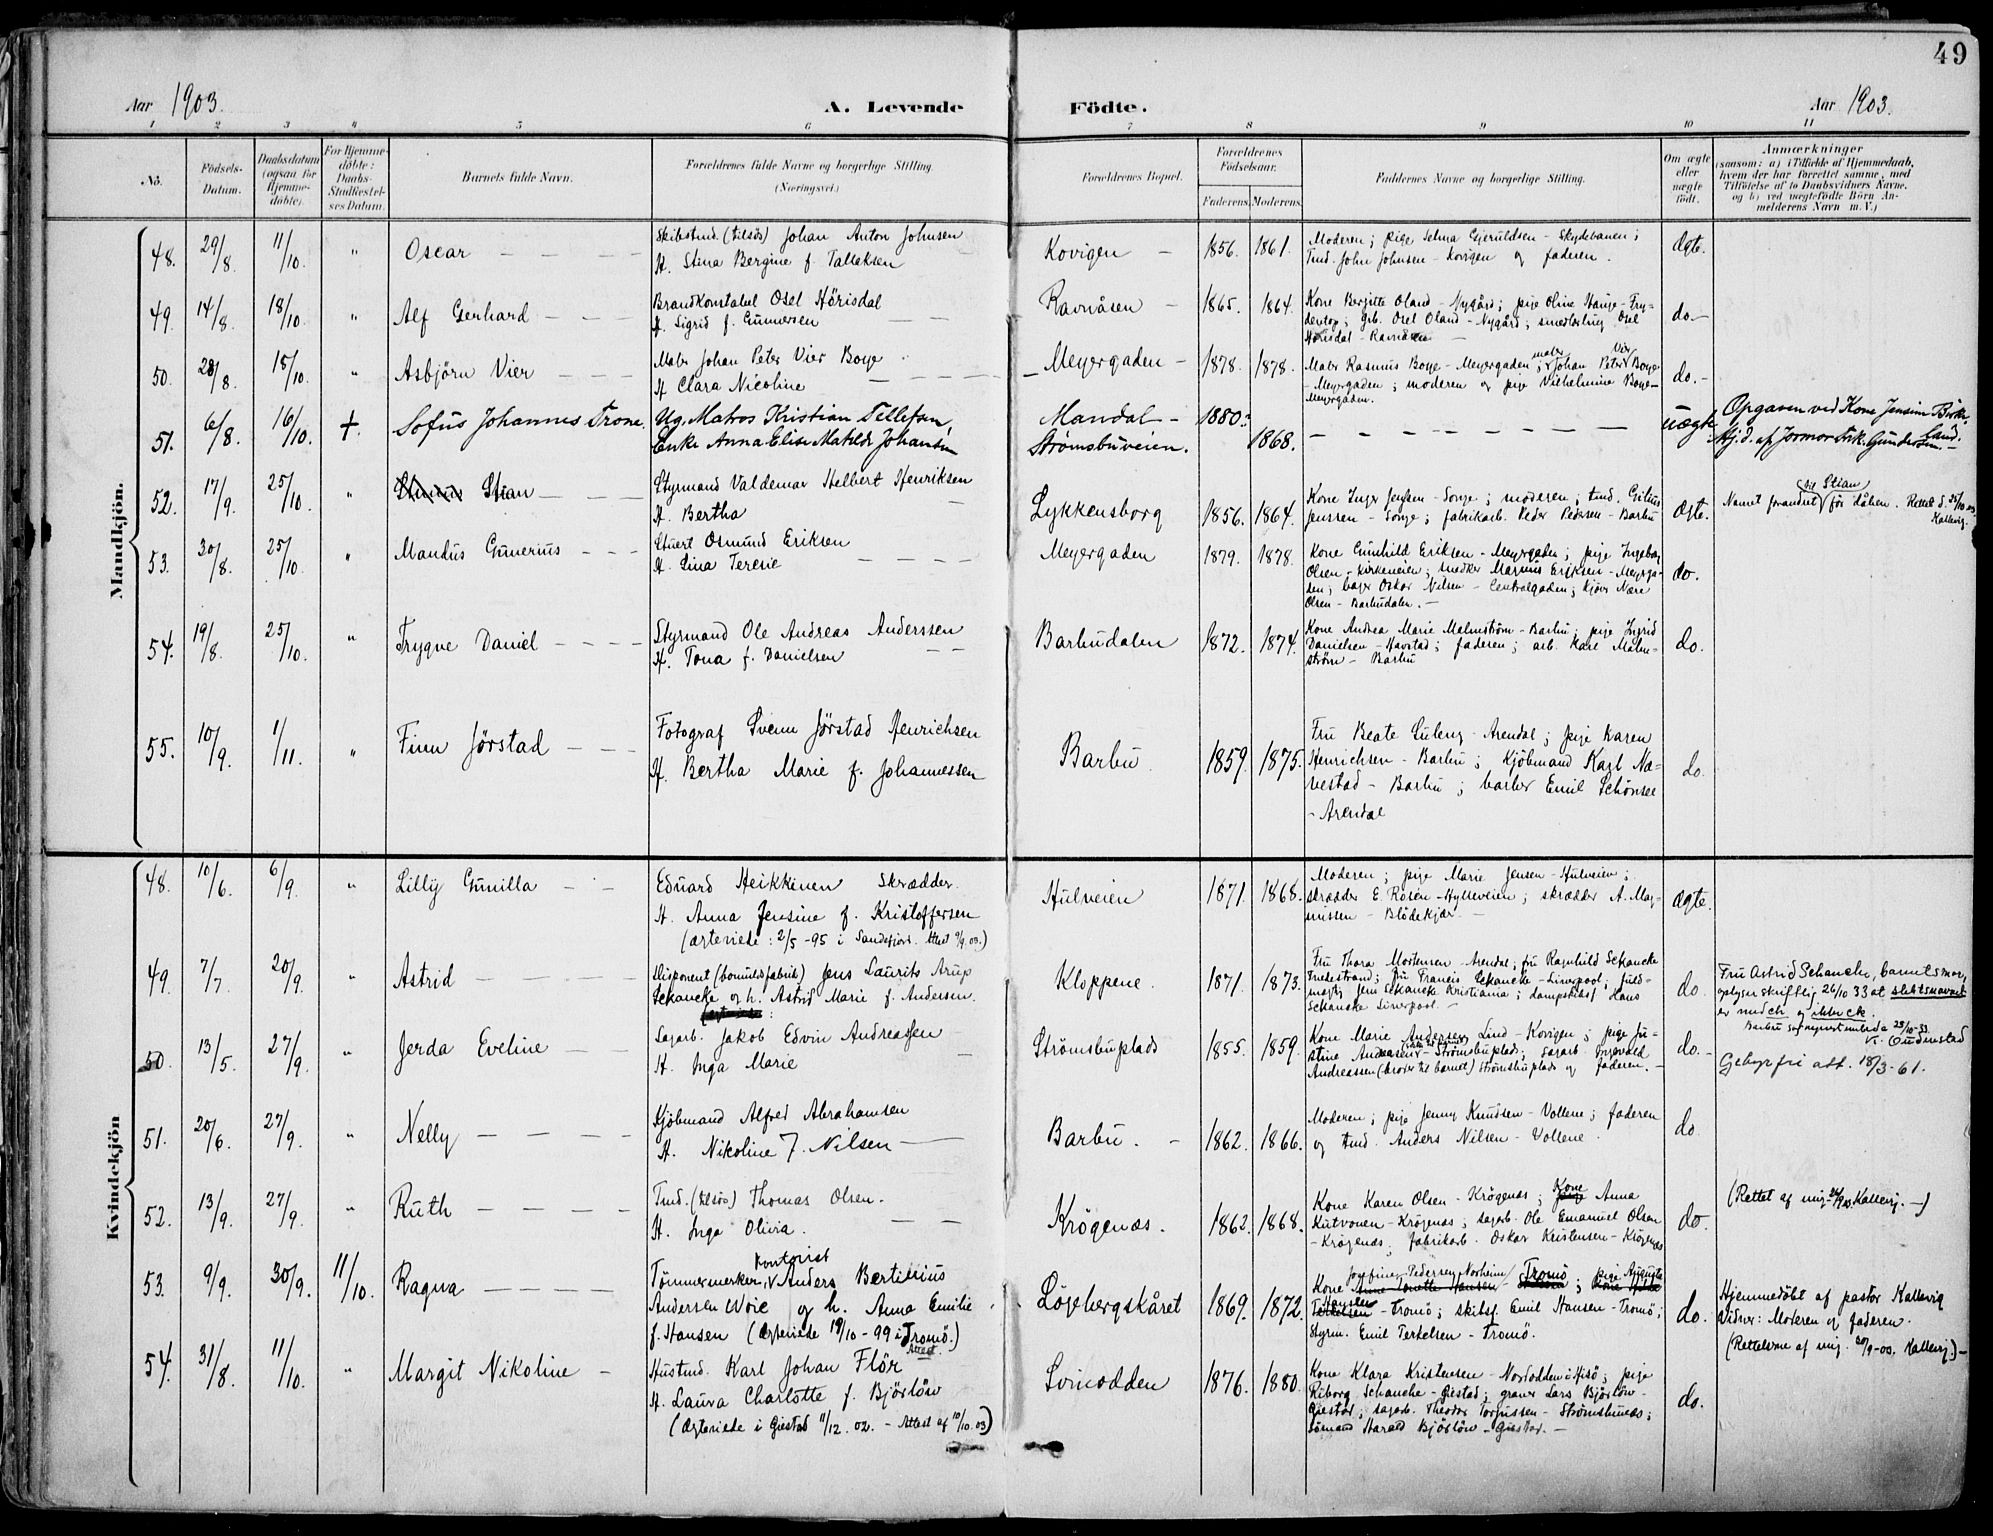 49
Aar 1903.
A. Levende
Födte.
Aar 1903.
1 2 3 4 5 6 7 8 9 10 11
No.
Födsels-Datum.
Daabsdatum (ogsaa for Hjemmedöbte).
For Hjemmedöbte: Daabs-Stadfæstelses Datum.
Barnets fulde Navn.
Forældrenes fulde Navne og borgerlige Stilling.
(Næringsvei.)
Forældrenes Bopæl.
Forældrenes Födselsaar.
Faderens. Moderens.
Faddernes Navne og borgerlige Stilling.
Om ægte eller uægte födt.
Anmærkninger
(saasom: a) i Tilfælde af Hjemmedaab, hvem der har forrettet samme, med Tilföielse af to Daabsvidners Navne. og b) ved uægtefödte Börn Anmelderens Navn m. V.)
Mandkjön.
48. 29/8. 11/10. " Oscar
Skibstmd. (tilsös) Johan Anton Johnsen
H. Stina Bergine f. Tallaksen
Kovigen 1856. 1861.
Moderen; pige Selma Gjeruldsen - Skydebanen;
Tmd. John Johnsen - Kovigen og faderen.
ægte.
49. 14/8. 18/10. " Alf Gerhard
Brandkonstabel Osel Hörisdal
H. Sigrid f. Gunnersen
Ravnåsen 1865. 1864.
Kone Bergitte Oland - Nygård; pige Oline Hauge - Fry-
dentop; grb. Osel Oland - Nygård; Osel
Hörisdal - Ravnåsen
do.
50. 28/8. 18/10. " Asbjörn Vier
Maler Johan Peter Vier Boye
H. Clara Nicoline
Meyergaden 1878. 1878.
Maler Rasmus Boye - Meyergaden; maler Johan Peter Vier Boye
- Meyergaden; moderen og pige Vilhelmine Boye -
Meyergaden.
do.
51. 6/8. 16/10. +. Sofus Johannes Trone.
Ug. Matros Kristian Tellefsen,
Enke Anna Elise Matilde Johansen
Mandal -
Strömsbuveien.
1880?
1868.
uægte
Opgaven ved Kone Jensine Birke-
land.
Hj.d. af Jormor Frk. Gundersen.
52. 17/9. 25/10. " Stian
Styrmand Valdemar Helbert Henriksen
H. Bertha
Lykkensborg 1856. 1864.
Kone Inger Jenssen - Songe; moderen; tmd. Gilius
Jenssen - Songe; fabrikarb. Peder Pedersen - Barbu
ægte.
Navnet forandret til Stian för dåben. Rettet d. 25/10 03
Kallevig.
53. 30/8. 25/10. " Mandus Gunerius
Stuert Osmund Eriksen
H. Lina Terese
Meyergaden 1879. 1878.
Kone Gunhild Eriksen - Meyergaden; pige Ingeborg
Olsen - Kirkeveien; snedker Marius Eriksen - Meyerga-
den; bager Oskar Nilsen - Centralgaden; Næve
Olsen - Barbudalen.
do.
54. 19/8. 25/10. " Trygve Daniel
Styrmand Ole Andreas Anderssen
H. Tona f. Danielsen
Barbudalen 1872. 1874.
Kone Andrea Marie Malmström - Barbu; pige Ingrid
Danielsen - Havstad; faderen; arb. Karl Malm-
ström - Barbu
do.
55. 10/9. 1/11. " Finn Jörstad
Fotograf Svenn Jörstad Henrichsen
H. Bertha Marie f. Johannessen
Barbu 1859. 1875.
Fru Beate - Arendal; pige Karen
Henrichsen - Barbu; Kjöbmand Karl Næ-
vestad - Barbu; barber Emil Schönsee
- Arendal
do.
Kvindekjön
48. 10/6. 6/9. " Lilly Gunilla
Eduard Heikkinen Skrædder.
H. Anna Jensine f. Kristoffersen
(ægteviede: 2/5 -95 i Sandefjord. Attest 9/9. 03.)
Hulveien 1871. 1868.
Moderen; pige Marie Jensen - Hulveien;
skrædder E. Rosen - Hylleveien; skrædder A. Mag-
nussen - Blödekjær
ægte.
49. 7/7. 20/9. " Astrid
Disponent (bomuldsfabrik) Jens Laurits Arup
Schancke og h. Astrid Marie f. Andersen.
Kloppene. 1871. 1873.
Fru Thora Mortensen - Arendal; fru Ragnhild Schancke
Tvedestrand; fru Francis Schancke - Liverpool; fuld-
mægtig Jens Schancke Kristiania; dampskibsf Hans
Schancke Liverpool.
do.
Fru Astrid Schanche, barnets mor,
oplyser skriftlig 26/10 33 at slektsnavnet
er med ch og ikke ck.
Barbu sogneprestembede 28/10-33.
50. 13/5. 27/9. " Jerda Eveline
Sagarb. Jakob Edvin Andreassen
H. Inga Marie
Strömsbuplads 1855. 1859.
Kone Marie Andersen Lind - Kovigen; pige Ju-
stine Andreassen - Strömsbuplads; sagarb. Ingvald
Andreassen (broder til barnet) Strömsbuplads og faderen.
do.
Gebyrfri att. 18/3-61.
51. 20/6. 27/9. " Nelly
Kjöbmand Alfred Abrahamsen
H. Nikoline f. Nilsen
Barbu. 1862. 1866.
Moderen; pige Jenny Knudsen - Vollene; faderen
og tmd. Anders Nilsen - Vollene.
do
52. 13/9. 27/9. " Ruth
Tmd. (tilsös) Thomas Olsen.
H. Inga Olivia.
Krögenæs. 1862. 1868.
Kone Karen Olsen - Krögenæs; Kone Anna
Kutvonen - Krögenæs; sagarb. Ole Emanuel Olsen
- Krögenæs, fabrikarb. Oskar Kristensen - Krögenæs
do.
(Rettet af mig Kallevig. -)
53. 9/9. 30/9. 11/10. Ragna
Kontorist
Tömmermerker, Anders Bertinius
Andersen Woie og h. Anna Emilie
f. Hansen (ægteviede 19/10 - 99 i Tromö.)
Attest.
Løgebergskåret 1869. 1872.
Kone Josefine Pedersen Norheim - Tromö; pige Auguste
Hansen - Tromö; skibsf. Emil Hansen - Tromö;
Styrm. Emil Terkelsen - Tromö.
do.
Hjemmedöbt af pastor Kallevig
Vidner: Moderen og faderen.
(Rettelserne af mig. Kallevig.) -
54. 31/8. 11/10. " Margit Nikoline
Hustmd. Karl Johan Flör
H. Laura Charlotte f. Björlöw
(ægteviede i Gjestad 11/12. 02. - Attest af 10/10. 03)
Svinodden 1876. 1880.
Kone Klara Kristensen - Nordodden i Hisö; pige
Riborg Schanche - Gjestad; graver Lars Björlöw -
Gjestad; sagarb. Theodor Torjussen - Strömsbunes;
Sömand Harald Björlöw - Gjestad.
do.